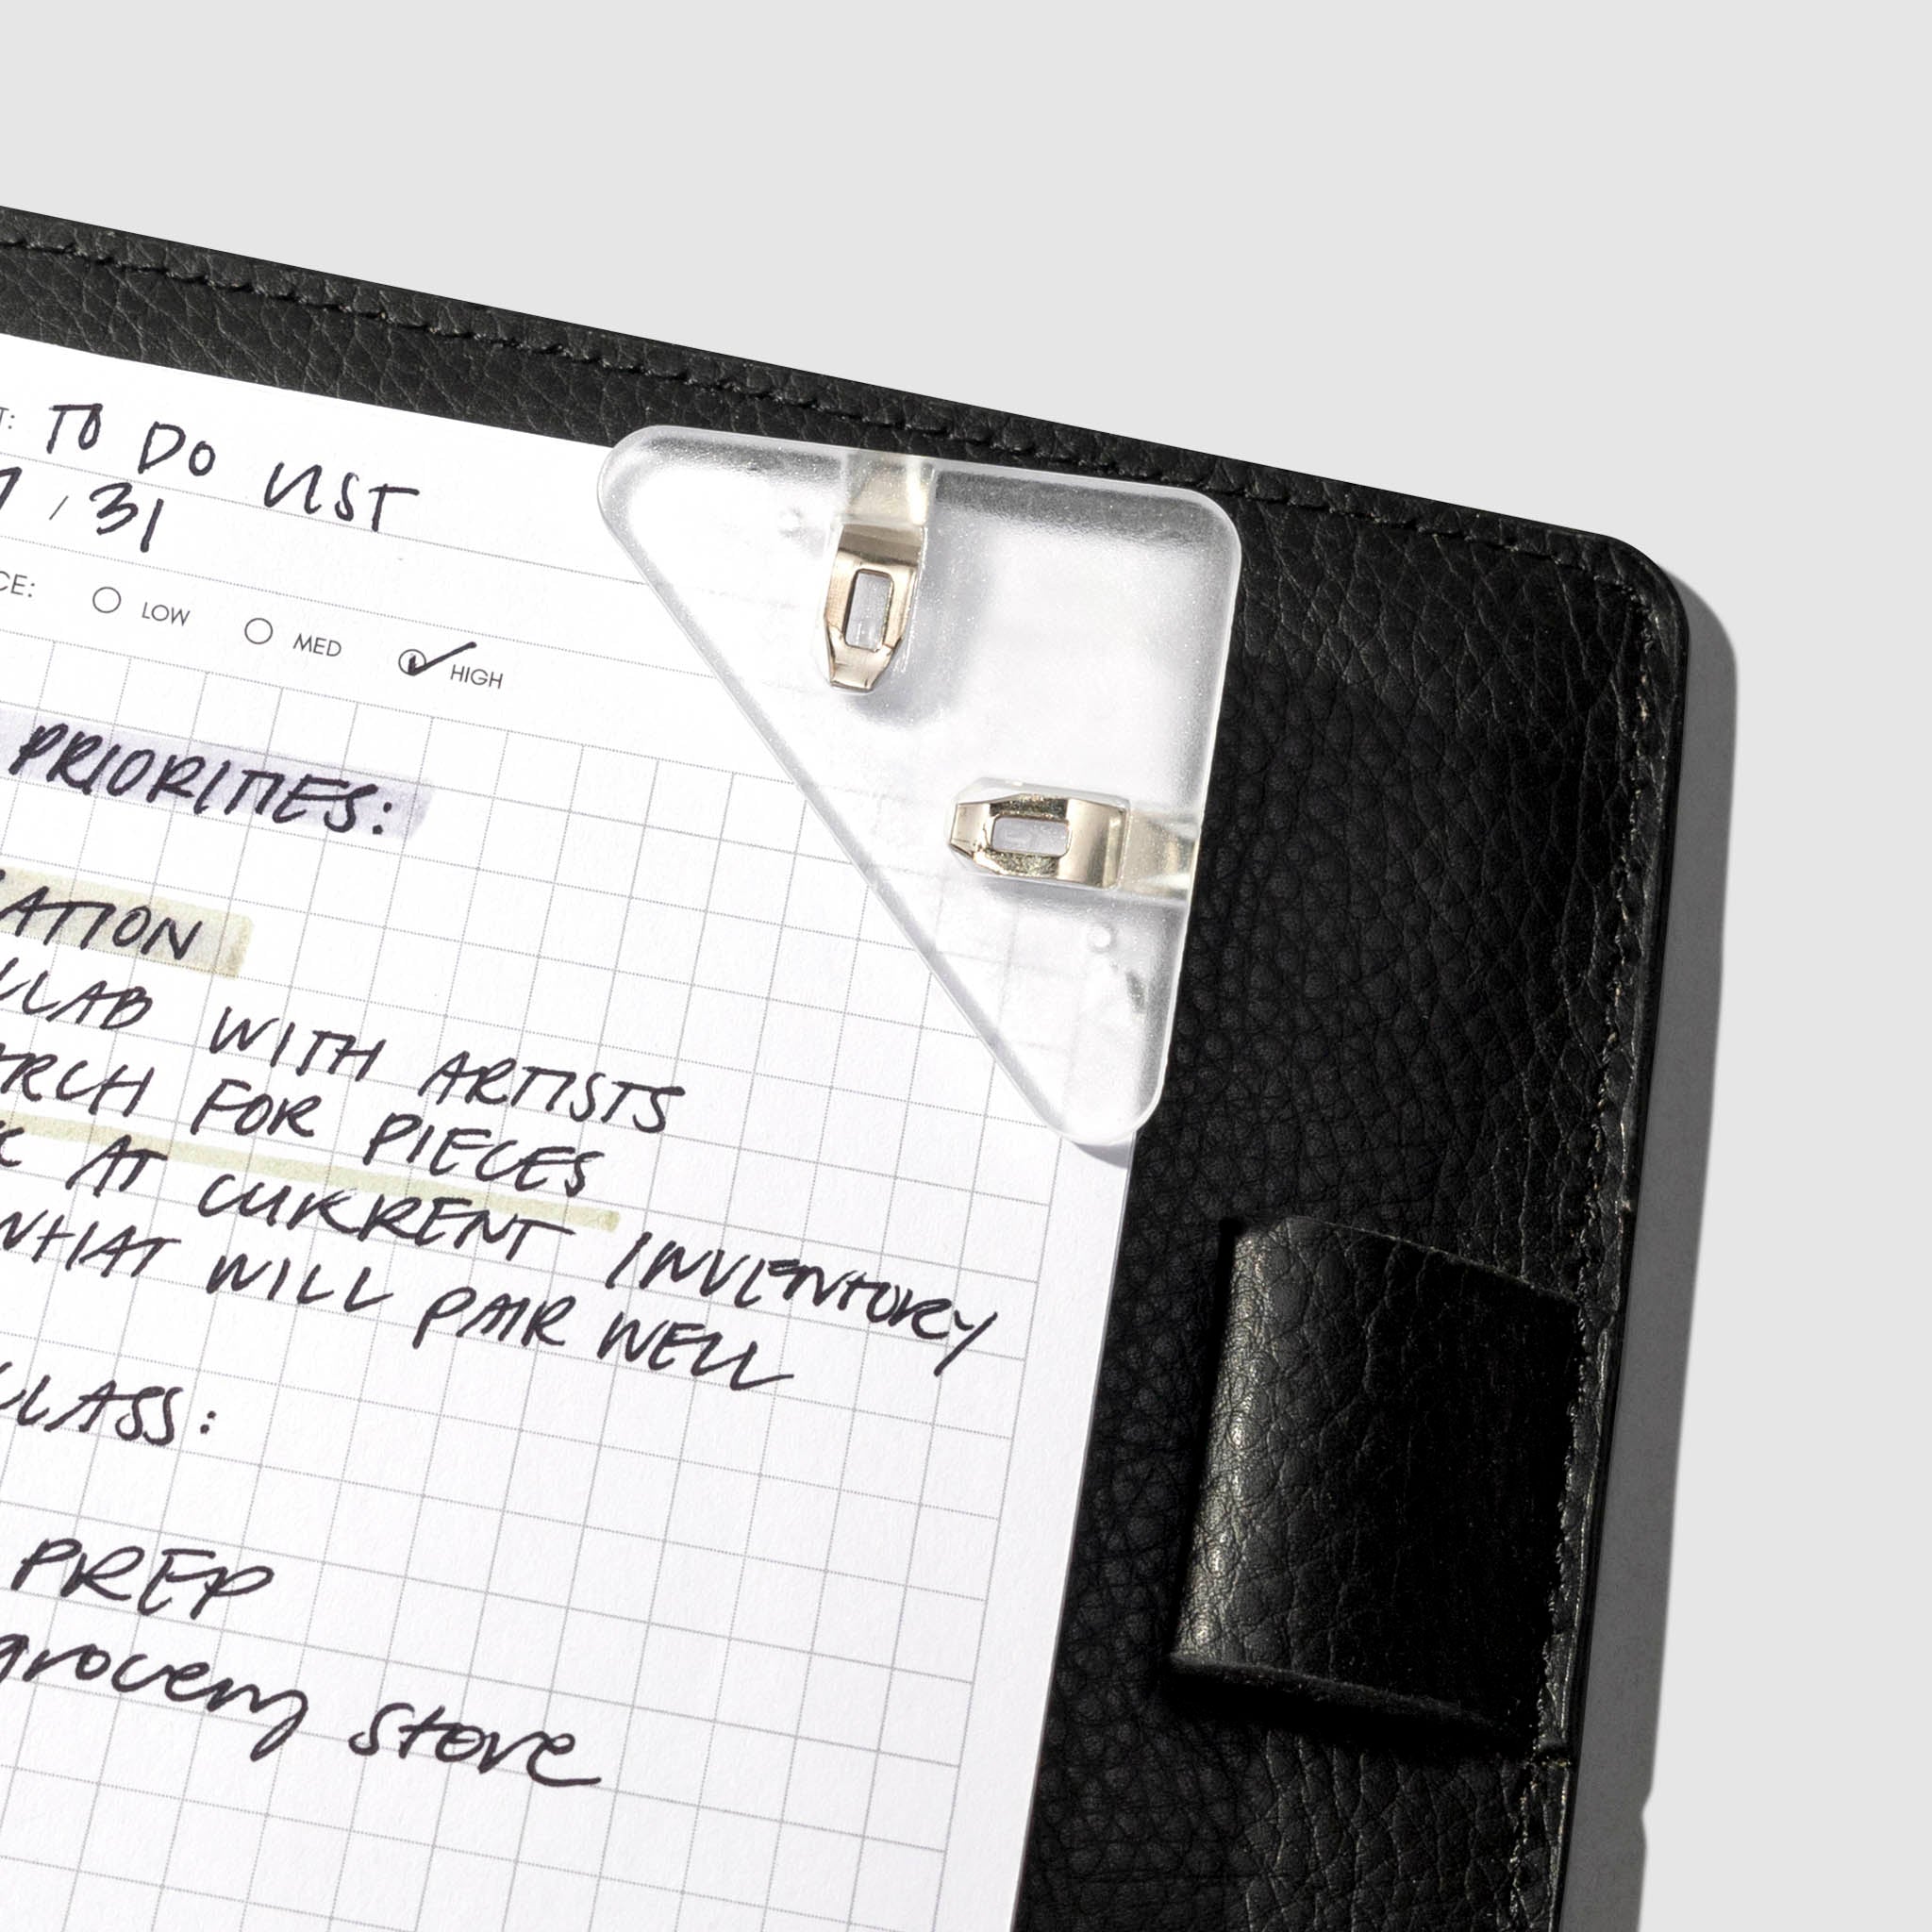 T: TO DO LIST
7/31
CE: LOW MED HIGH
PRIORITIES:
ATION
LLAB WITH ARTISTS
RCH FOR PIECES
AT CURRENT INVENTORY
WHAT WILL PAIR WELL
CLASS:
PREP
grocery store